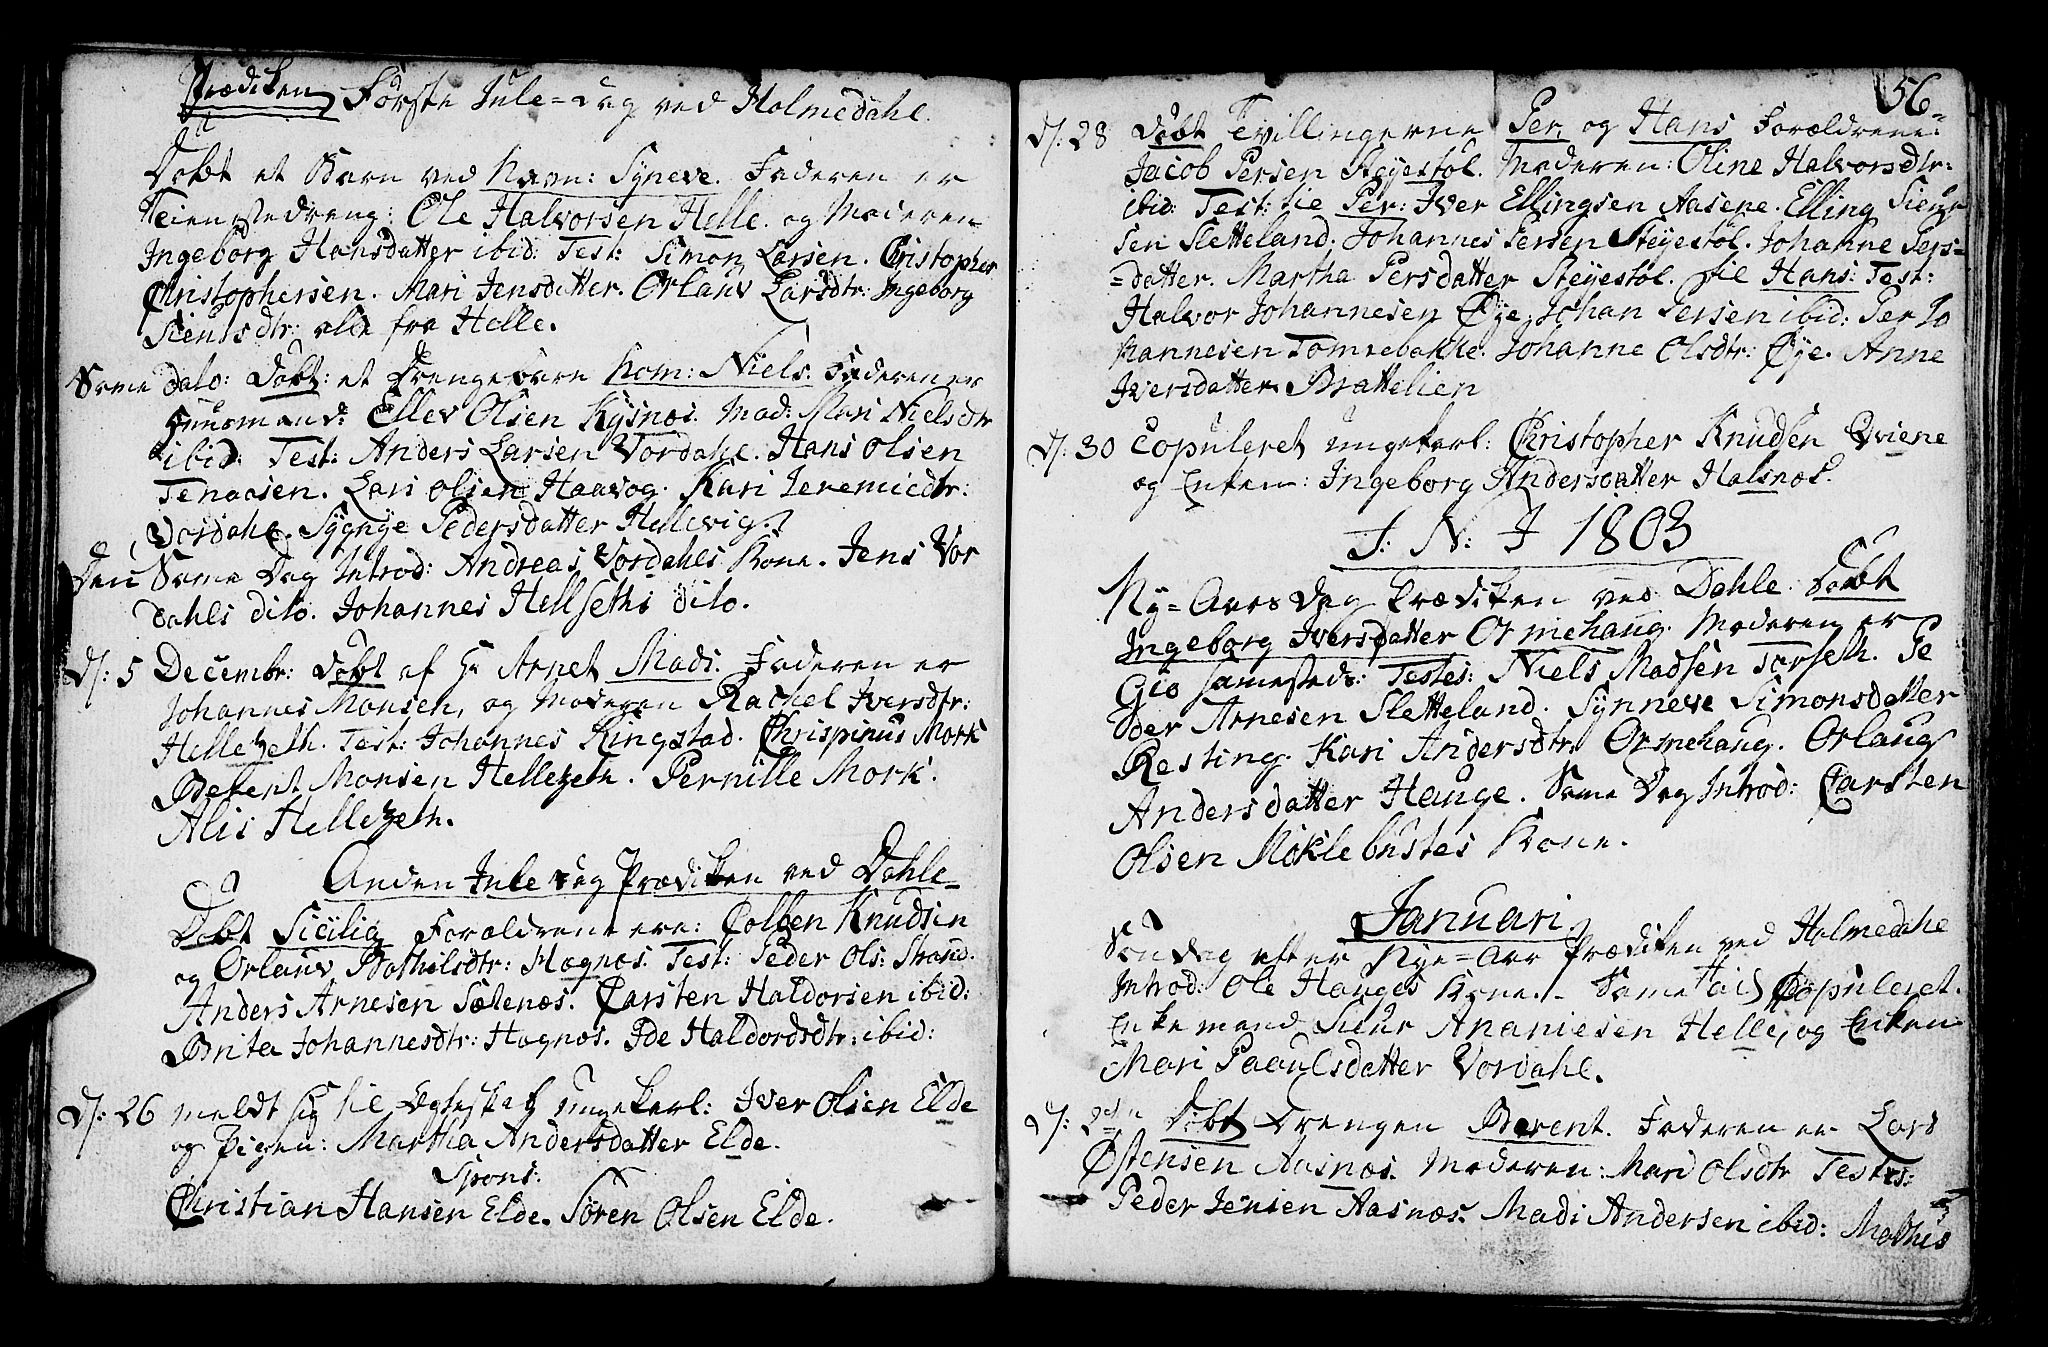 Prædiken Første Jule=Dag ved Holmedahl.
Døbt et Barn ved Navn: Syneve. Faderen er
Tienestedreng: Ole Halvorsen Helle. og Moderen
Ingeborg Hansdatter ibid: Test: Simon Larsen. Christopher
Christophersen. Mari Jensdatter. Orlaug Larsdtr: Ingeborg
Siensdtr: alle fra Helle.
Same dato: Døbt: et Drengebarn kom: Niels. Faderen er
Huusmand: Ellev Olsen Kysnæs. Mod: Mari Nielsdtr
ibid: Test: Anders Larsen Vordahl. Hans Olsen
Tenaasen. Lars Olsen Haavog. Kari Jeremiedtr:
Vordahl. Sygnye Pedersdatter Hellevig.
Den Same Dag Introd: Andreas Vordahls Kone. Jens Vor
dahls dito. Johannes Hellseths dito.
D: 5 Decembr: Døbt af Hr Arnet Mads. Faderen er
Johannes Monsen, og Moderen Rachel Iversdtr:
Hellezeth. Test: Johannes Ringstad. Chrispinus Mork
Berent Monsen Hellezeth. Pernille Mork.
Alis Hellezeth.
Anden Jule dag Prædiken ved Dahle
Døbt Sicilia Forældrene ere: Colben Knudsen
og Orlaug Bothilsdtr: Hognæs. Test: Peder Ols: Strand.
Anders Arnesen Sætenæs. Carsten Haldorsen ibid:
Brita Johannesdtr: Hognæs. Ide Haldordsdtr: ibid:
D: 26 meldt sig til Ægteskab Ungekarl: Iver Olsen Elde
og Pigen: Martha Andersdatter Elde.
Spons:
Christian Hansen Elde. Søren Olsen Elde.
56
D: 28 Døbt Tvillingerne Per, og Hans Forældrene:
Jacob Persen Støyestøl. Moderen: Oline Halvorsdtr:
ibid: Test: til Per: Iver Ellingsen Aasene. Elling Siur
sen Sletteland. Johannes Persen Støyestøl. Johanne Pers=
=datter. Martha Persdatter Støyestøl. til Hans: Test:
Halvor Johannesen Øye. Johan Persen ibid: Per Jo
hannesen Tomrebakke. Johanne Olsdtr: Øye. Anne
Iversdatter Brattelien
D: 30 Copuleret ungekarl: Christopher Knudsen Qviene
og Enken: Ingeborg Andersdatter Halsnæs.
I: N: J 1803
Ny=Aars Dag Prædiken ved Dahle. Døbt
Ingeborg Iversdatter Ormehaug. Moderen er
Gio samesteds: Testes: Niels Madsen Torseth. Pe
der Arnesen Sletteland. Synneve Simonsdatter
Resting. Kari Andersdtr. Ormehaug. Orlaug
Andersdatter Hauge. Same Dag Introd: Carsten
Olsen Møklebustes Kone.
Januari
Søndag efter Nye=Aar Prædiken ved Holmedahl
Introd: Ole Hauges Kone. Same Tid Copuleret.
Enkemand Siur Ananiesen Helle, og Enken
Mari Paaulsdatter Vordahl.
D: 2den Døbt Drengen Berent. Faderen er Lars
Østensen Aasnæs. Moderen: Mari Olsdtr Testes:
Peder Jensen Aasnæs. Mads Andersen ibid: Mathis